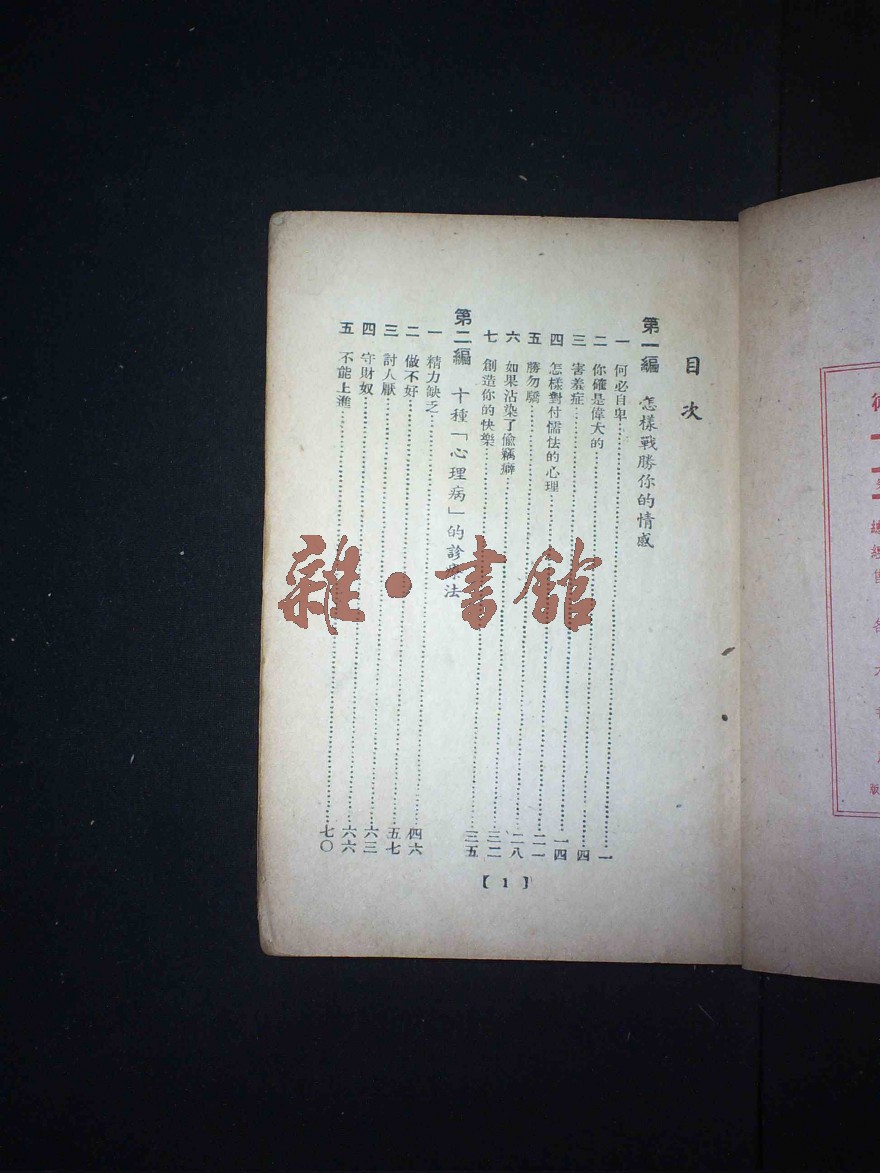 目次
第一編 怎樣戰勝你的情感
一 何必自卑……一
二 你確是偉大的……四
三 害羞症……一四
四 怎樣對付懦怯的心理……二一
五 勝勿驕……二八
六 如果沾染了偷竊癖……三二
七 創造你的快樂……三五
第二編 十種「心理病」的診療法
一 精力缺乏……四六
二 做不好……五七
三 討人厭……六三
四 守財奴……六六
五 不能上進……七〇
【1】
雜·書館